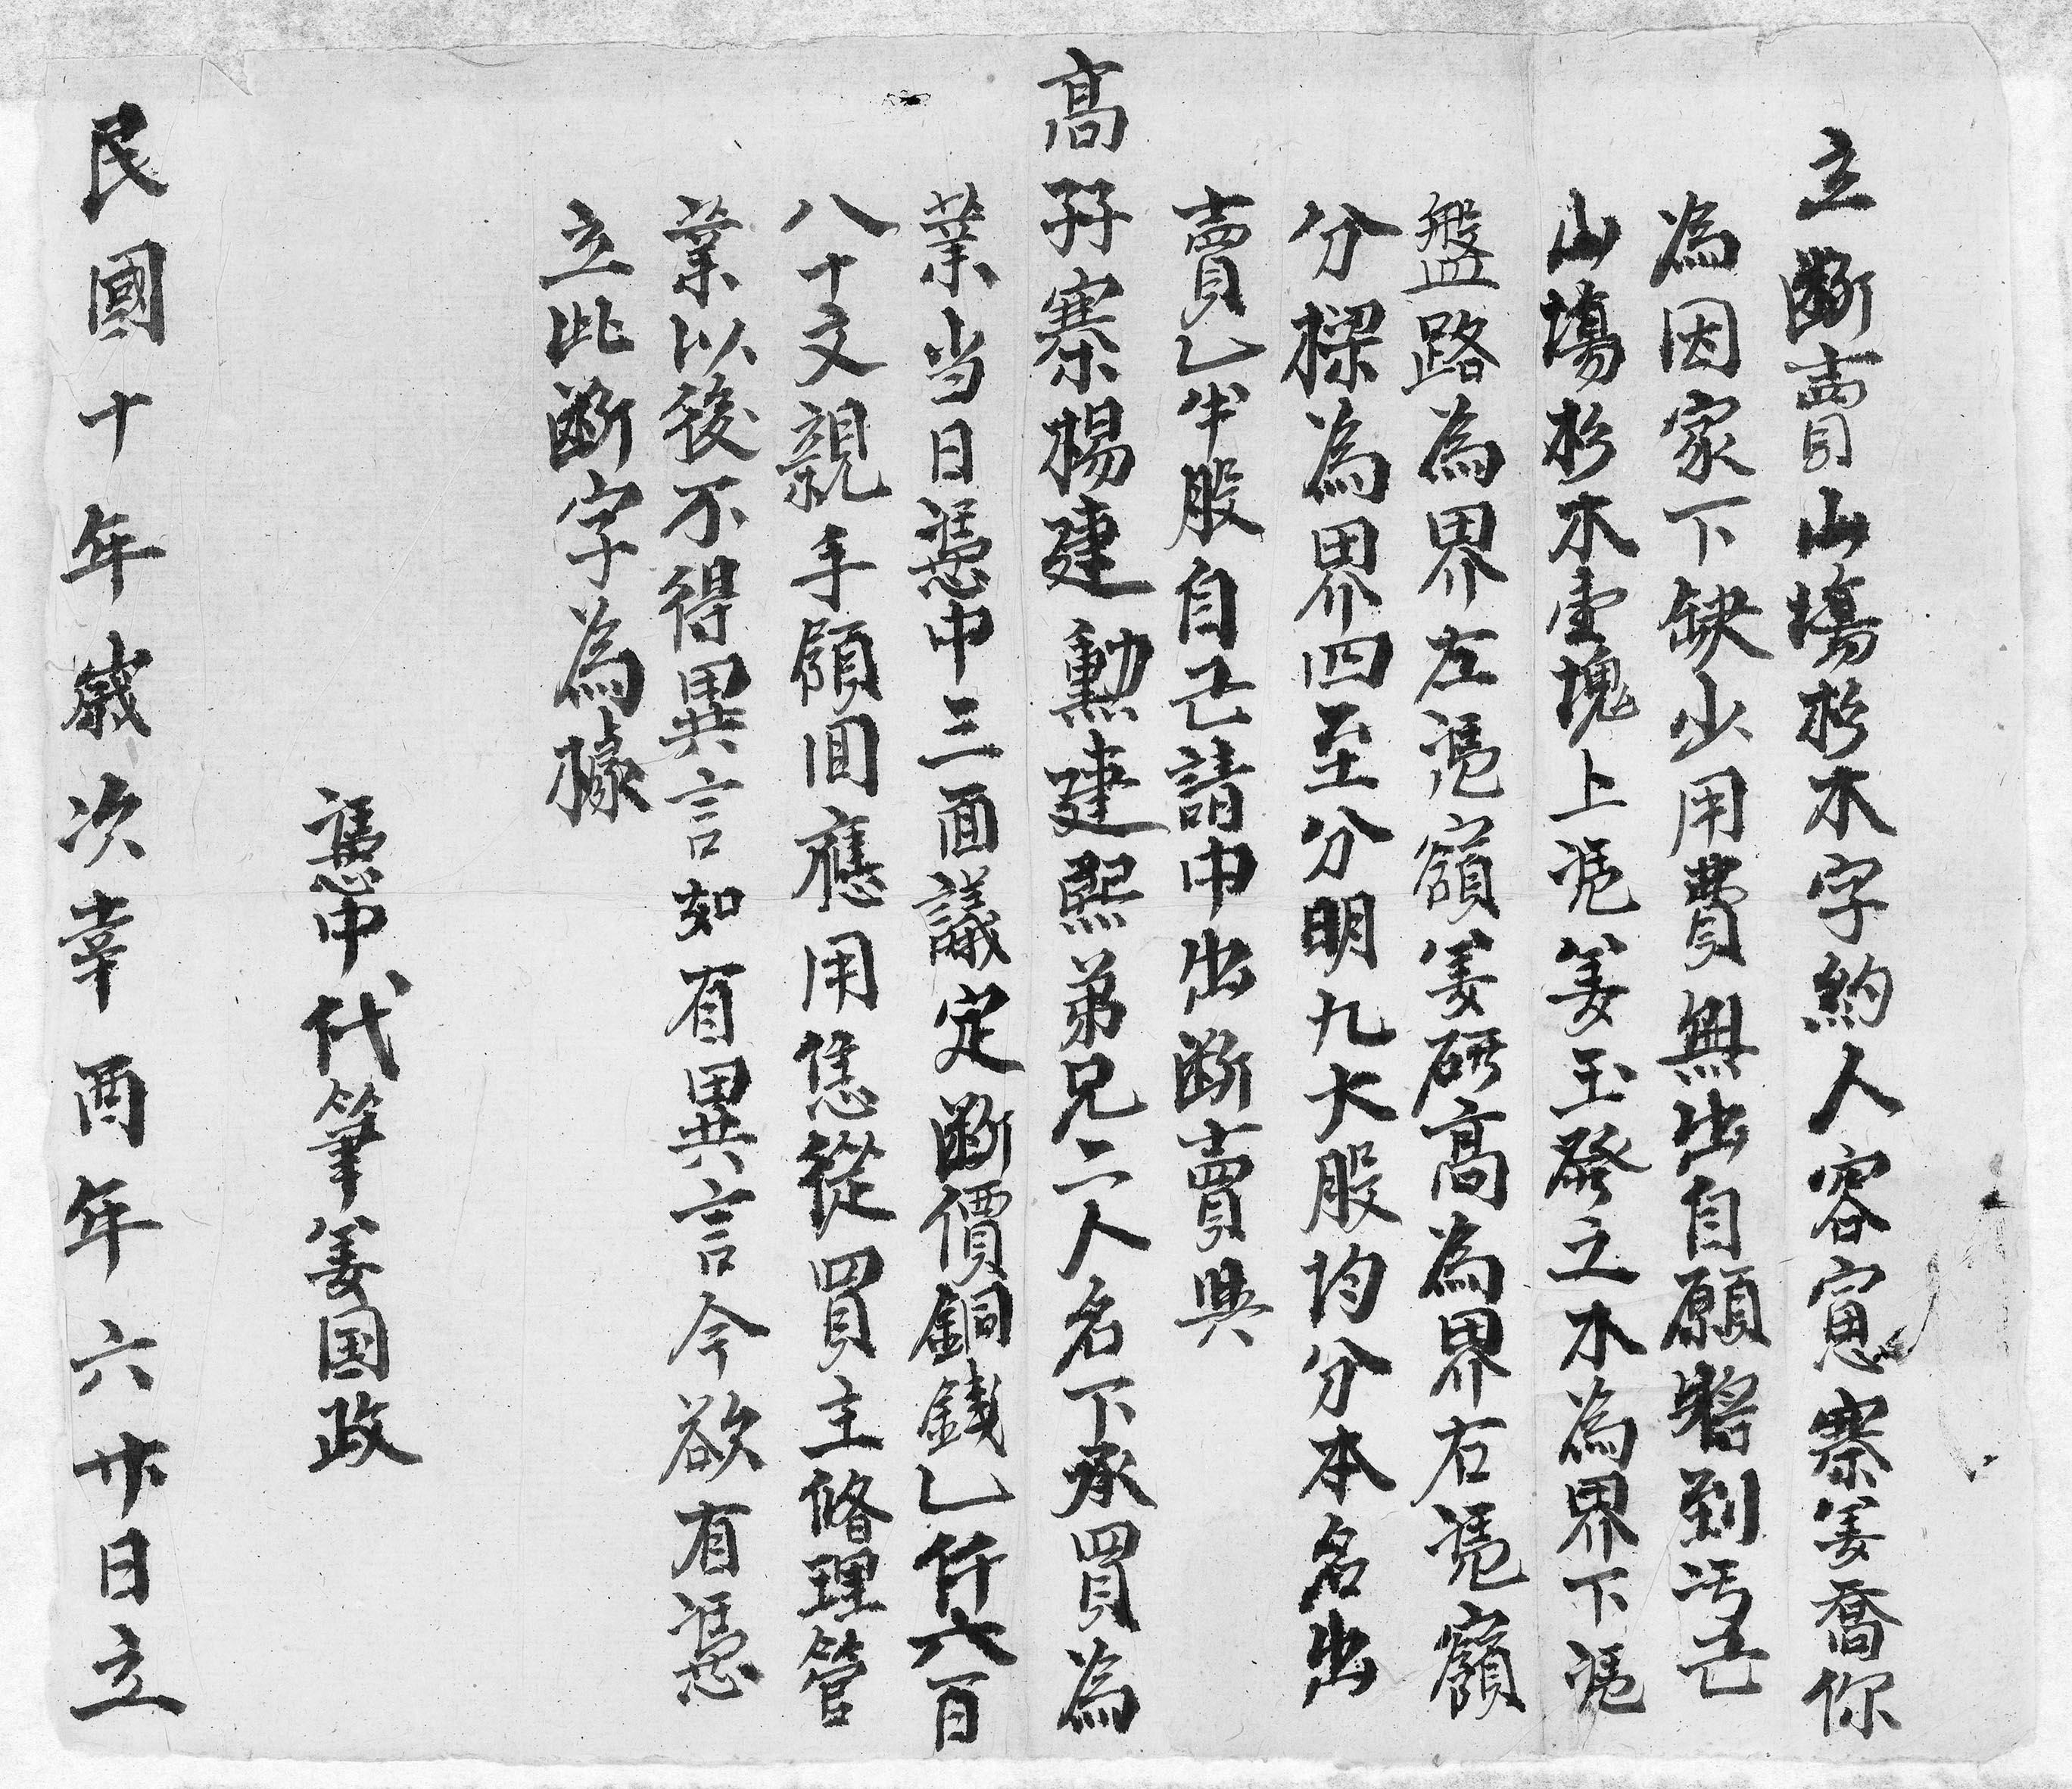 立断賣山塲杉木字約人容窻寨姜喬你
為因家下缺少用費無出自願將到汚亡
山塲杉木壹塊上凴姜玉發之木為界下凴
盤路為界左凴嶺姜研高為界右凴嶺
分樑為界四至分明九大股均分本名出
賣乙半股自己請中出断賣與
高孖寨楊建勳建熙弟兄二人名下承買為
業当日憑中三面議定断價銅錢乙仟六百
八十文親手領囬應用恁從買主修理管
業以後不得異言如有異言今欲有憑
立此断字為據
憑中代筆姜国政
民國十年歲次辛酉年六廿日立